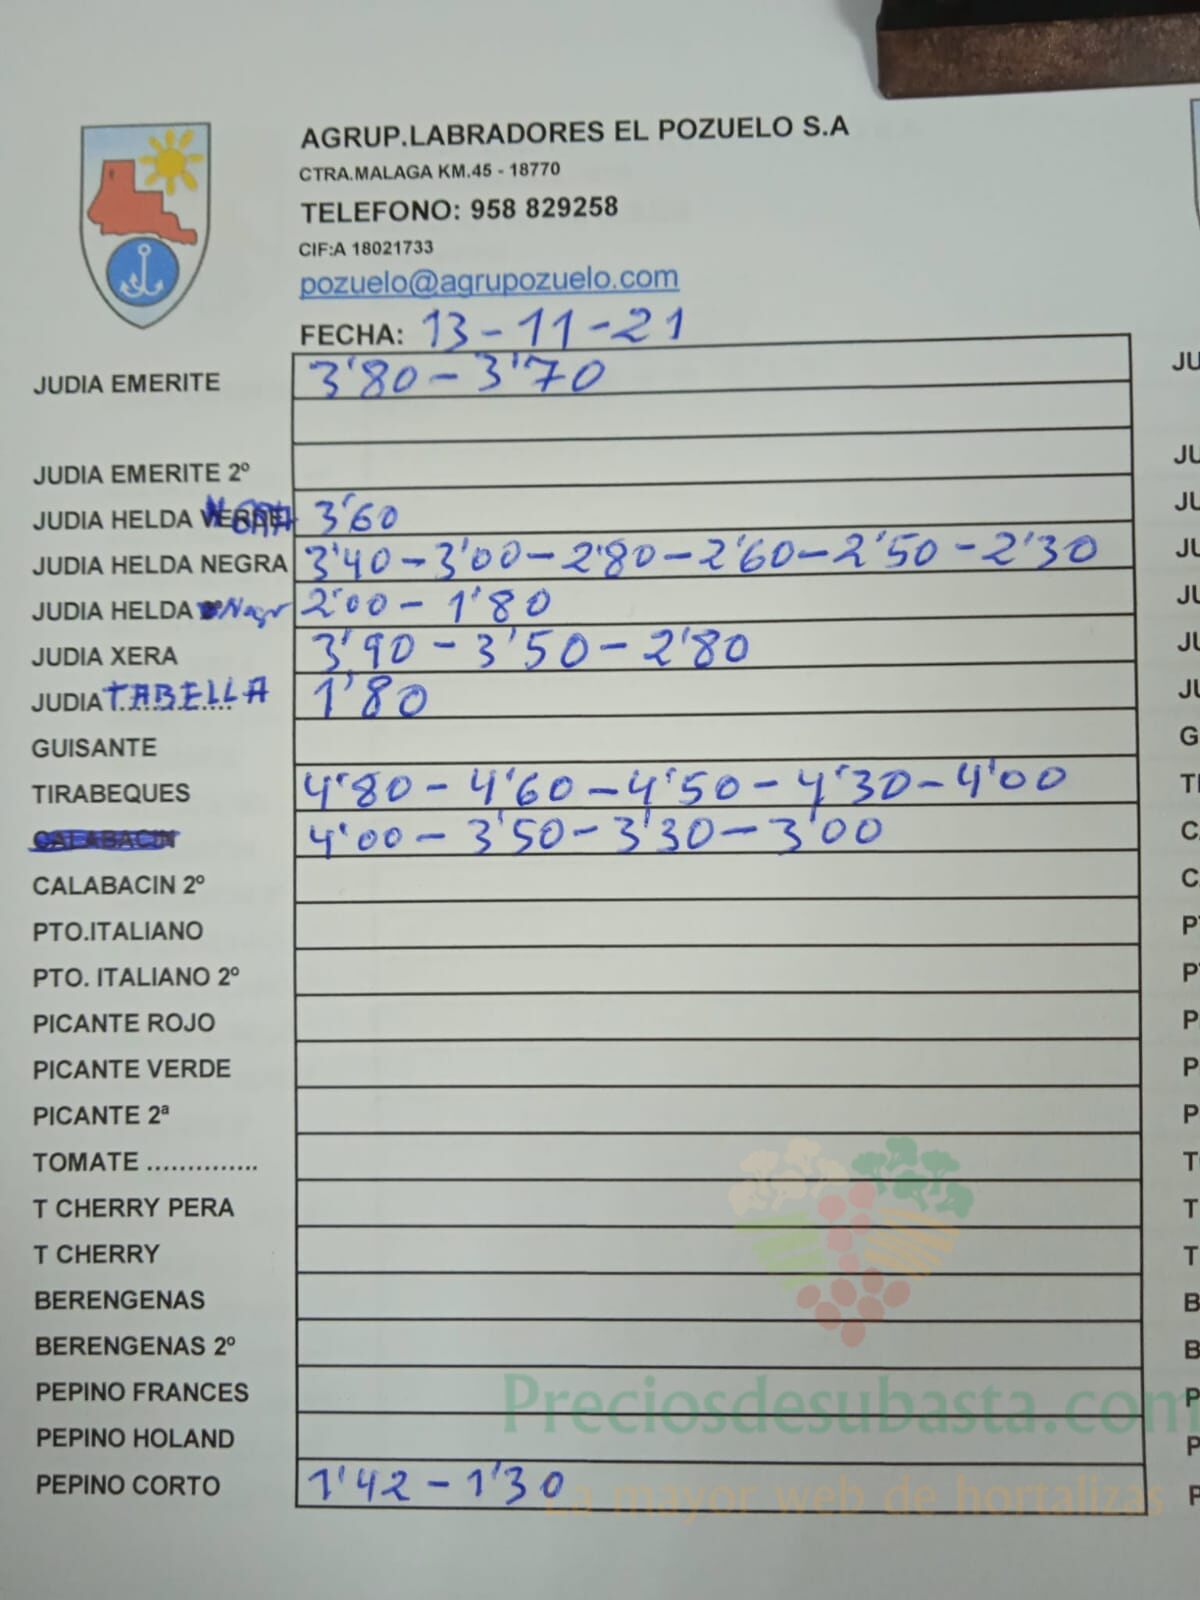 AGRUP.LABRADORES EL POZUELO S.A
CTRA.MALAGA KM.45 - 18770
TELEFONO: 958 829258
CIF:A 18021733
pozuelo@agrupozuelo.com
FECHA: 13-11-21
JUDIA EMERITE 3'80 - 3'70
JUDIA EMERITE 2º
JUDIA HELDA 3'60
JUDIA HELDA NEGRA 3'40 - 3'00 - 2'80 - 2'60 - 2'50 - 2'30
JUDIA HELDA Negr 2'00 - 1'80
JUDIA XERA 3'90 - 3'50 - 2'80
JUDIA TABELLA 1'80
GUISANTE
TIRABEQUES 4'80 - 4'60 - 4'50 - 4'30 - 4'00
CALABACIN 4'00 - 3'50 - 3'30 - 3'00
CALABACIN 2º
PTO.ITALIANO
PTO. ITALIANO 2º
PICANTE ROJO
PICANTE VERDE
PICANTE 2ª
TOMATE ..............
T CHERRY PERA
T CHERRY
BERENGENAS
BERENGENAS 2º
PEPINO FRANCES
Preciosdesubasta.com
PEPINO HOLAND
PEPINO CORTO 1'42 - 1'30
La mayor web de hortalizas